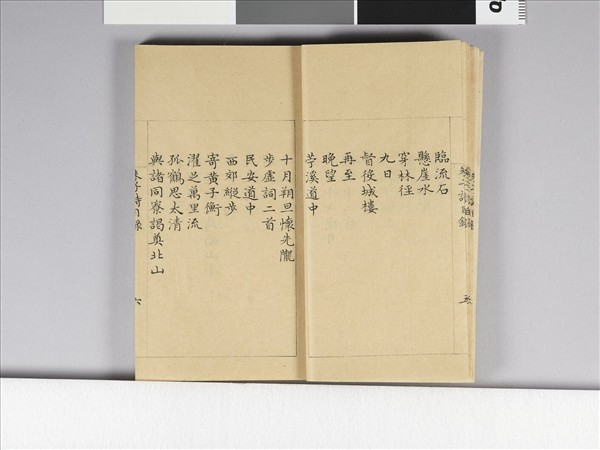 臨流石
懸崖水
穿林徑
九日
督役城樓
再至
晚望
苧溪道中
十月朔旦懷先隴
步虛詞二首
民安道中
西郊縱步
寄黃子衡
濯足萬里流
孤鶴思太清
與諸同寮謁奠北山
朱子詩目錄
六